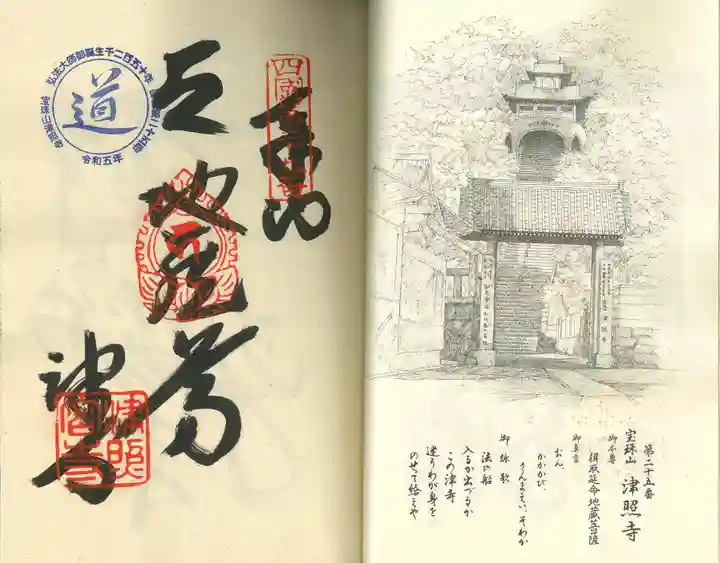 第二十五番
宝珠山 津照寺
御本尊
楫取延命地蔵菩薩
御真言
おん、
かかかび、
さんまえい、そわか
御詠歌
法の船
入るか出づるか
この津寺
迷うわが身を
のせて給へや
奉納
地蔵尊
津寺
弘法大師御誕生千二百五十年
道
第二十五番
宝珠山津照寺
令和五年